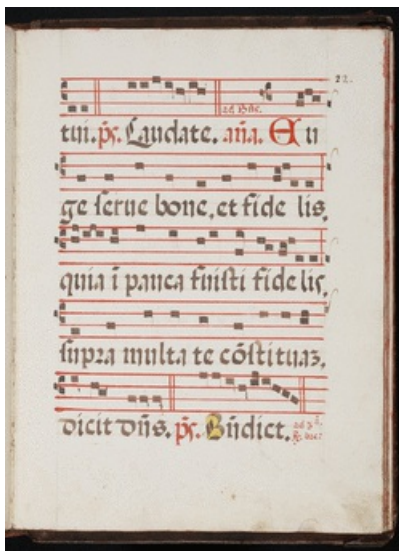 22.
ad Bñc.
tui. ps. Laudate. aña. Eu
ge serue bone, et fide lis
quia ī pauca fuisti fidelis,
supra multa te cōstituaz,
dicit dñs. ps. Bñdict.